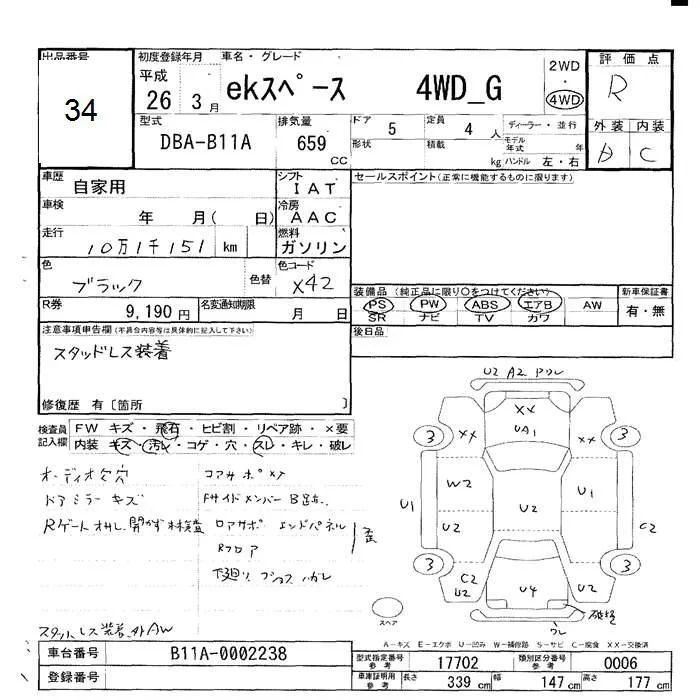 出品番号
34
初度登録年月
平成
26 3月
車名・グレード
ekスペース 4WD_G
2WD
・
4WD
評価点
R
外装 内装
A C
型式
DBA-B11A
排気量
659
CC
ドア 5
形状
定員 4 人
積載 kg
ディーラー・並行
モデル年式 年
ハンドル 左・右
車歴
自家用
車検
年 月( 日)
走行
10万1千151 km
シフト
IAT
冷房
AAC
燃料
ガソリン
セールスポイント(正常に機能するものに限ります)
色
ブラック
色替
色コード
X42
R券
9,190円
名変通知期限
月 日
装備品(純正品に限り○をつけてください)
PS PW ABS エアB AW
SR ナビ TV カワ
新車保証書
有・無
注意事項申告欄(不具合内容等は具体的に記入して下さい)
スタッドレス装着
後日品
修復歴 有〔箇所 〕
検査員記入欄
FW キズ・飛石・ヒビ割・リペア跡・×要
内装 キズ・汚レ・コゲ・穴・スレ・キレ・破レ
オーディオ欠穴
ドアミラーキズ
Rゲート
開かず未検査
コアサポメタ
Fサイドメンバー
ロアサポ エンドパネル
Rフロア
歪
下廻り
U2 A2 ワレ
XX
UA1
3 XX XX 3
W2 U1
U1 U2 C2
U2
3 3
C2
U2 U4 U2
破損
ワレ
スペア
スタットレス装着 外AW
A−キズ E−エクボ U−凹み W−補修跡 S−サビ C−腐食 XX−交換済
車台番号 B11A-0002238
登録番号
型式指定番号 参考 17702
類別区分番号 参考 0006
車庫証明用 参考 長さ 339 cm 幅 147 cm 高さ 177 cm